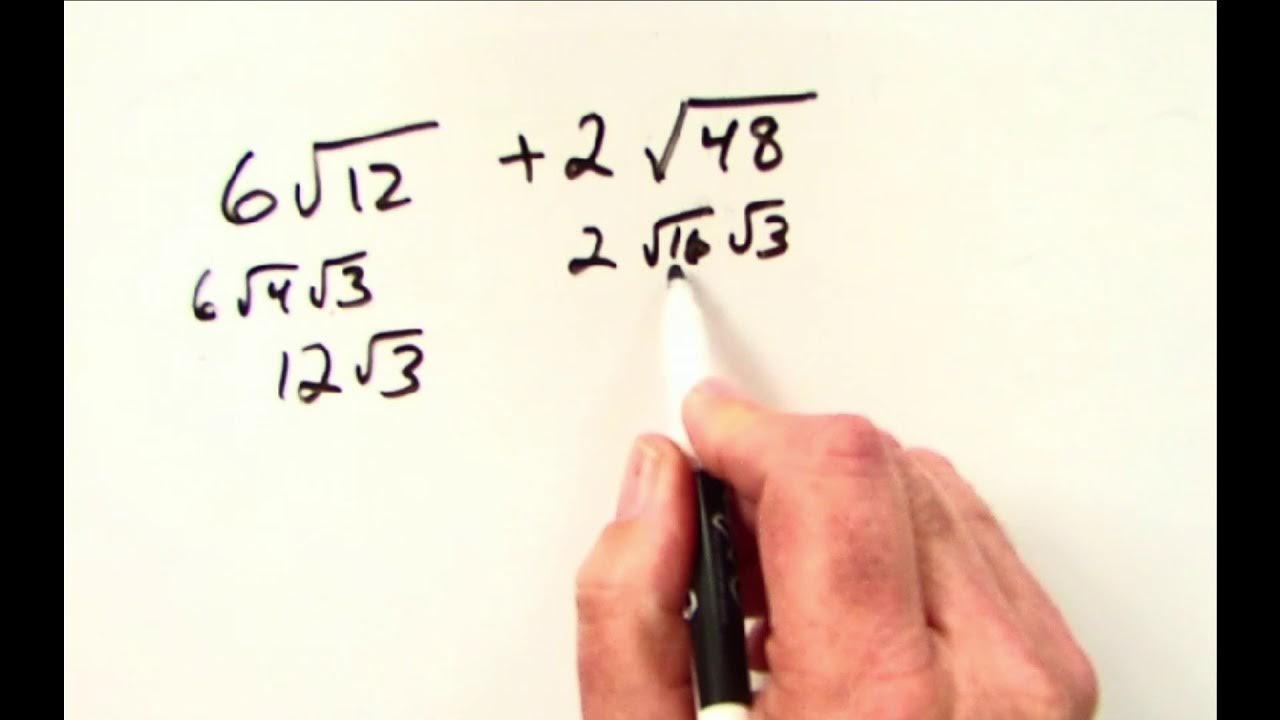 6√12 + 2√48
6√4√3 2√16√3
12√3